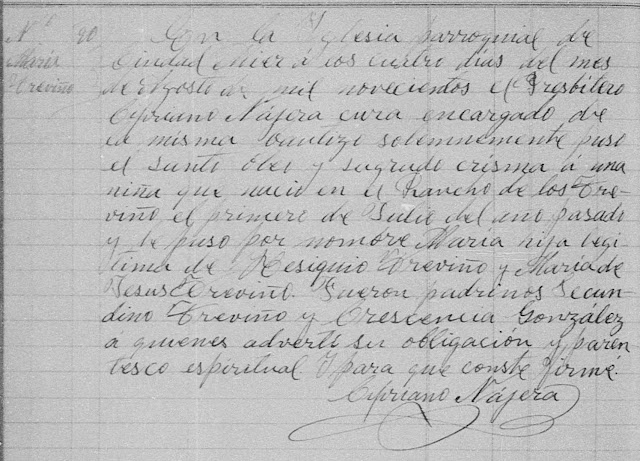 Nº 90
María
Treviño
En la Yglesia parroquial de
Ciudad Mier á los cuatro dias del mes
de Agosto de mil novecientos el Presbitero
Cipriano Nájera cura encargado de
la misma bautizo solemnemente puso
el santo óleo y sagrado crisma á una
niña que nacio en el Rancho de los Tre
viño el primero de Julio del año pasado
y le puso por nombre María hija legi
tima de Resiguio Treviño y María de
Jesus Treviño. Fueron padrinos Secun
dino Treviño y Crescencia González
á quienes advertí su obligación y paren
tesco espiritual Y para que conste firmé.
Cipriano Nájera